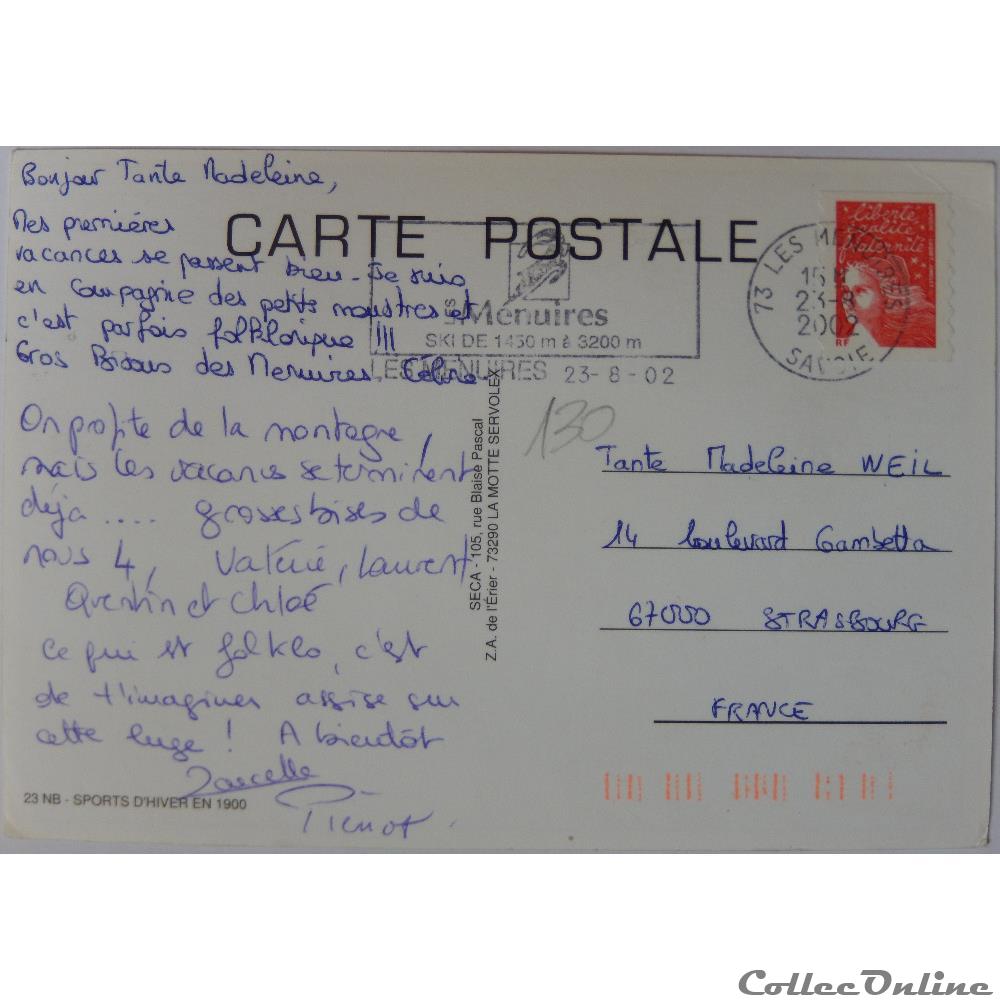 Bonjour Tante Madeleine,
Mes premières
vacances se passent bien - Je suis
en compagnie des petits monstres et
c'est parfois folklorique !!!
Gros Bisous des Menuires. Céline
On profite de la montagne,
mais les vacances se terminent
déjà .... grosses bises de
nous 4, Valérie, Laurent
Quentin et Chloé
Ce qui est folklo, c'est
de t'imaginer assise sur
cette luge ! A bientôt
Pierrot.
23 NB - SPORTS D'HIVER EN 1900
CARTE POSTALE
LES Menuires
SKI DE 1450 m à 3200 m
LES MENUIRES 23-8-02
73 LES MENUIRES
15 H
23-8
2002
SAVOIE
liberté
égalité
fraternité
RF
130
SECA - 105, rue Blaise Pascal
Z.A. de l'Érier - 73290 LA MOTTE SERVOLEX
Tante Madeleine WEIL
14 boulevard Gambetta
67000 STRASBOURG
FRANCE
CollecOnline